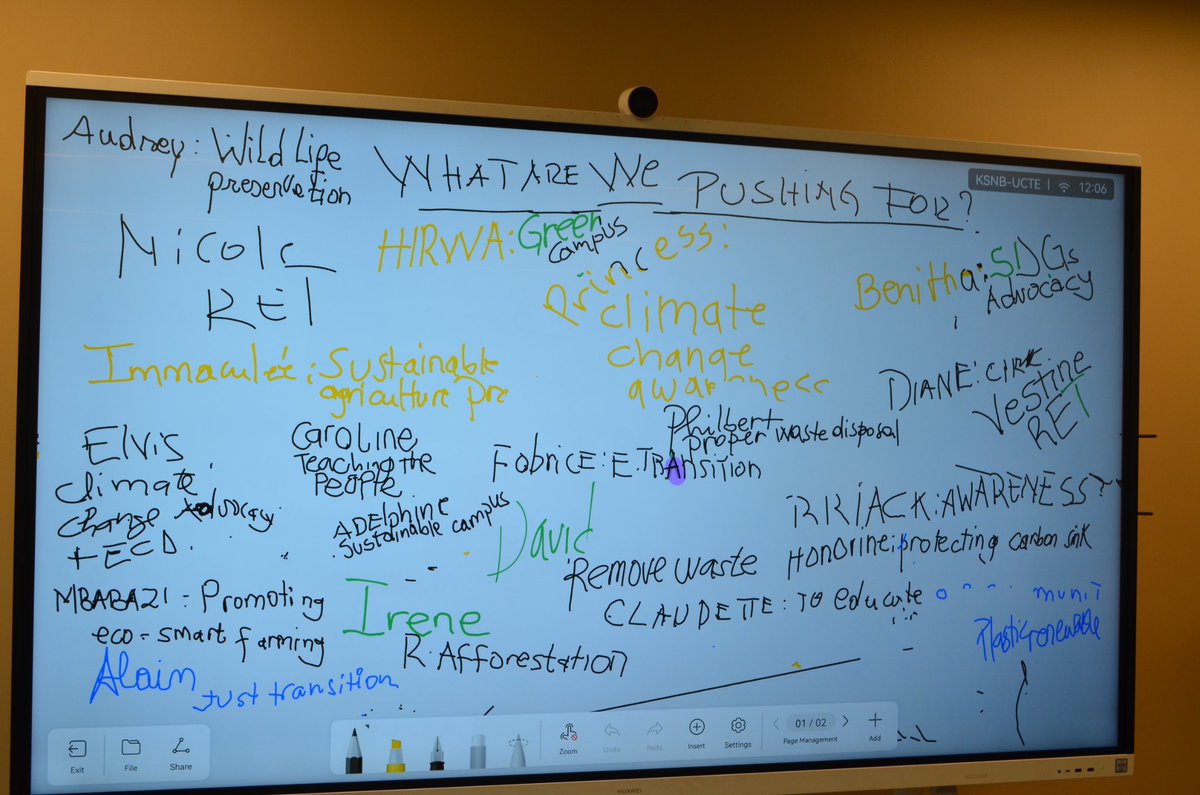 Audrey: Wild Lipe
preservation
WHAT ARE WE PUSHING FOR?
KSNB-UCTE 12:06
Nicole
RET
HIRWA: Green
campus
Princess:
climate
change
awarness
Benitha: SDGs
Advocacy
Immaculée: Sustainable
agriculture pre
DIANE: CIRK
Vestine
RET
Elvis
climate
change Advocacy
+ ECD.
Caroline
Teaching the
People
Philbert
proper waste disposal
Fabrice: E.TRANSITION
ADElphine
sustainable campus
David
Remove waste
RRIJACK: AWARENESS?
Honorine: protecting carbon sink
MBABAZI: Promoting
eco-smart farming
Irene
R. Afforestation
CLAUDETTE: TO educate
munit
Plastic renewable
Alain Just transition
Exit
File
Share
Zoom
Undo
Redo
Insert
Settings
01 / 02
Page Management
Add
HUAWEI